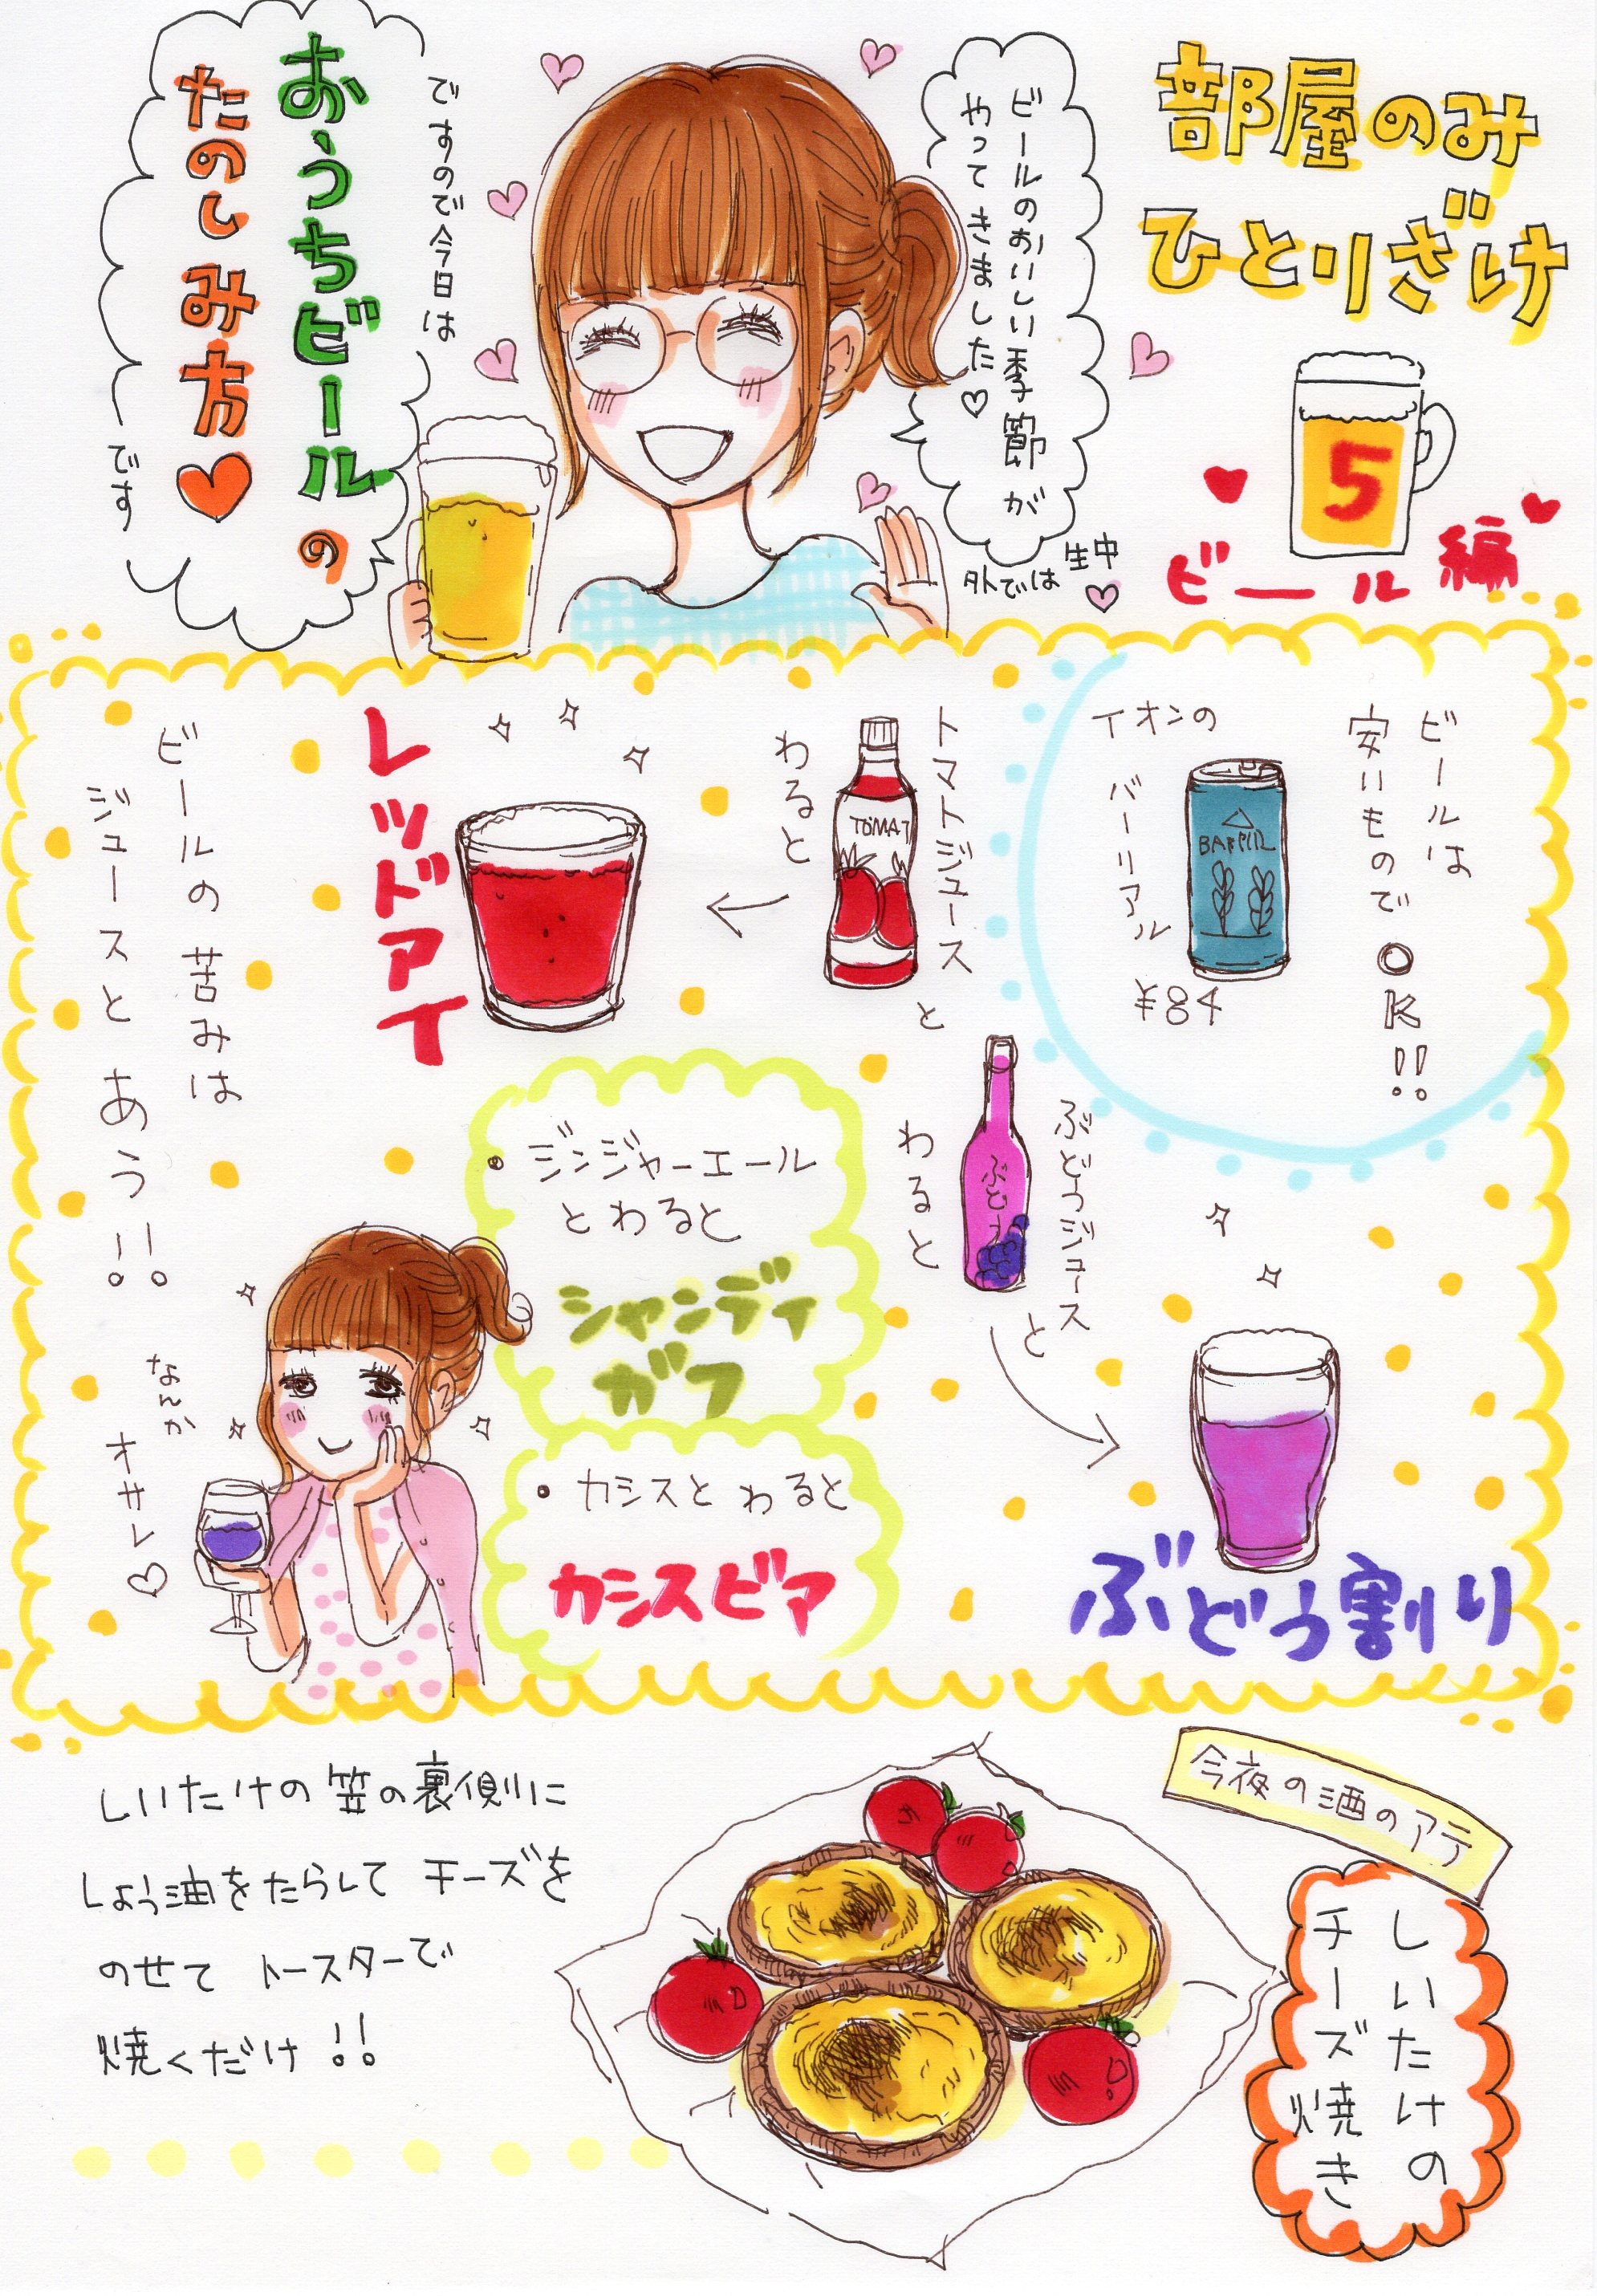 部屋のみ
ひとりざけ
5
ビール編
ビールのおいしい季節が
やってきました♡
外では
生中
ですので今日は
おうちビールの
たのしみ方♥
です
ビールは
安いもので OK!!
イオンの
バーリアル
BARREAL
¥84
トマトジュース
と
わると
TOMAT
レッドアイ
ぶどうジュース
と
わると
ぶどう
ぶどう割り
・ジンジャーエール
とわると
シャンディ
ガフ
・カシスとわると
カシスビア
ビールの苦みは
ジュースと あう!!
なんか
オサレ♡
今夜の酒のアテ
しいたけの
チーズ焼き
しいたけの笠の裏側に
しょう油をたらして チーズを
のせて トースターで
焼くだけ!!